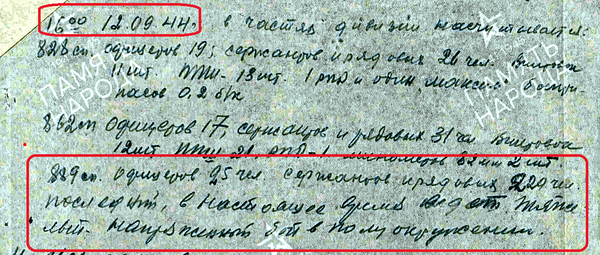 16⁰⁰ 12.09.44 г. в частях дивизии насчитывается:
828 сп. офицеров 19; сержантов и рядовых 26 чел. Винтовок
11 шт. ППШ - 13 шт. 1 РПД и один максим.
пасов 0,2 б/к
862 сп офицеров 17, сержантов и рядовых 31 чел. Винтовок
12 шт ППШ 21, РПД-1 минометов 82 мм 2 шт
889 сп. офицеров 25 чел сержантов и рядовых 229 чел.
последний, в настоящее время ведет тяже
лый напряженный бой в полуокружении.
ПАМЯТЬ НАРОДА
ПАМЯТЬ НАРОДА